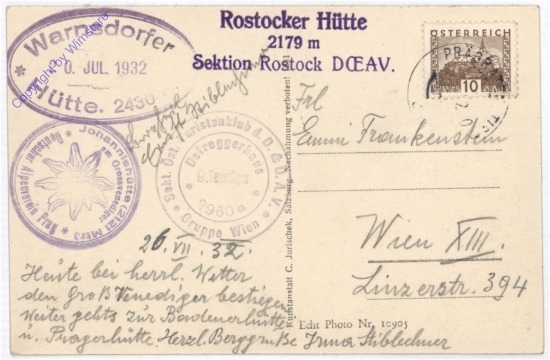 Rostocker Hütte
2179 m
Sektion Rostock DŒAV.
Warnsdorfer
0. JUL. 1932
Hütte. 2430
Copyright by Winstore
ÖSTERREICH
10
PRÄGR
Johannishütte (2121 Mtr.)
am Grossvenediger
Deutscher Alpenverein Prag
Sekt. Öst. Touristenklub d. D. & Ö. A. V.
Defreggerhaus
Gr. Venediger
2960 m
Gruppe Wien
Frl
Emmi Frankenstein
Wien XIII.
Linzerstr. 394
26. VII. 32.
Heute bei herrl. Wetter
den Groß Venediger bestiegen
Weiter gehts zur Badenerhütte
u. Pragerhütte. Herzl. Berggrüße Irma Stiblechner
Kunstanstalt C. Jurischek, Salzburg. Nachahmung verboten!
Echt Photo Nr. 10905